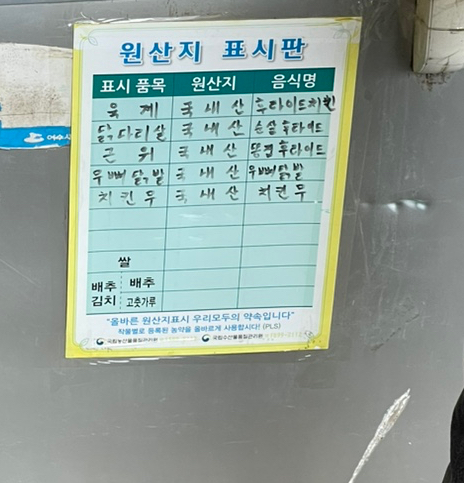 원산지 표시판
표시 품목 원산지 음식명
육계 국내산 후라이드치킨
닭다리살 국내산 순살후라이드
근위 국내산 똥집후라이드
무뼈닭발 국내산 무뼈닭발
치킨무 국내산 치킨무
쌀
배추김치 배추
고춧가루
"올바른 원산지표시 우리모두의 약속입니다"
작물별로 등록된 농약을 올바르게 사용합시다! (PLS)
국립농산물품질관리원 국립수산물품질관리원